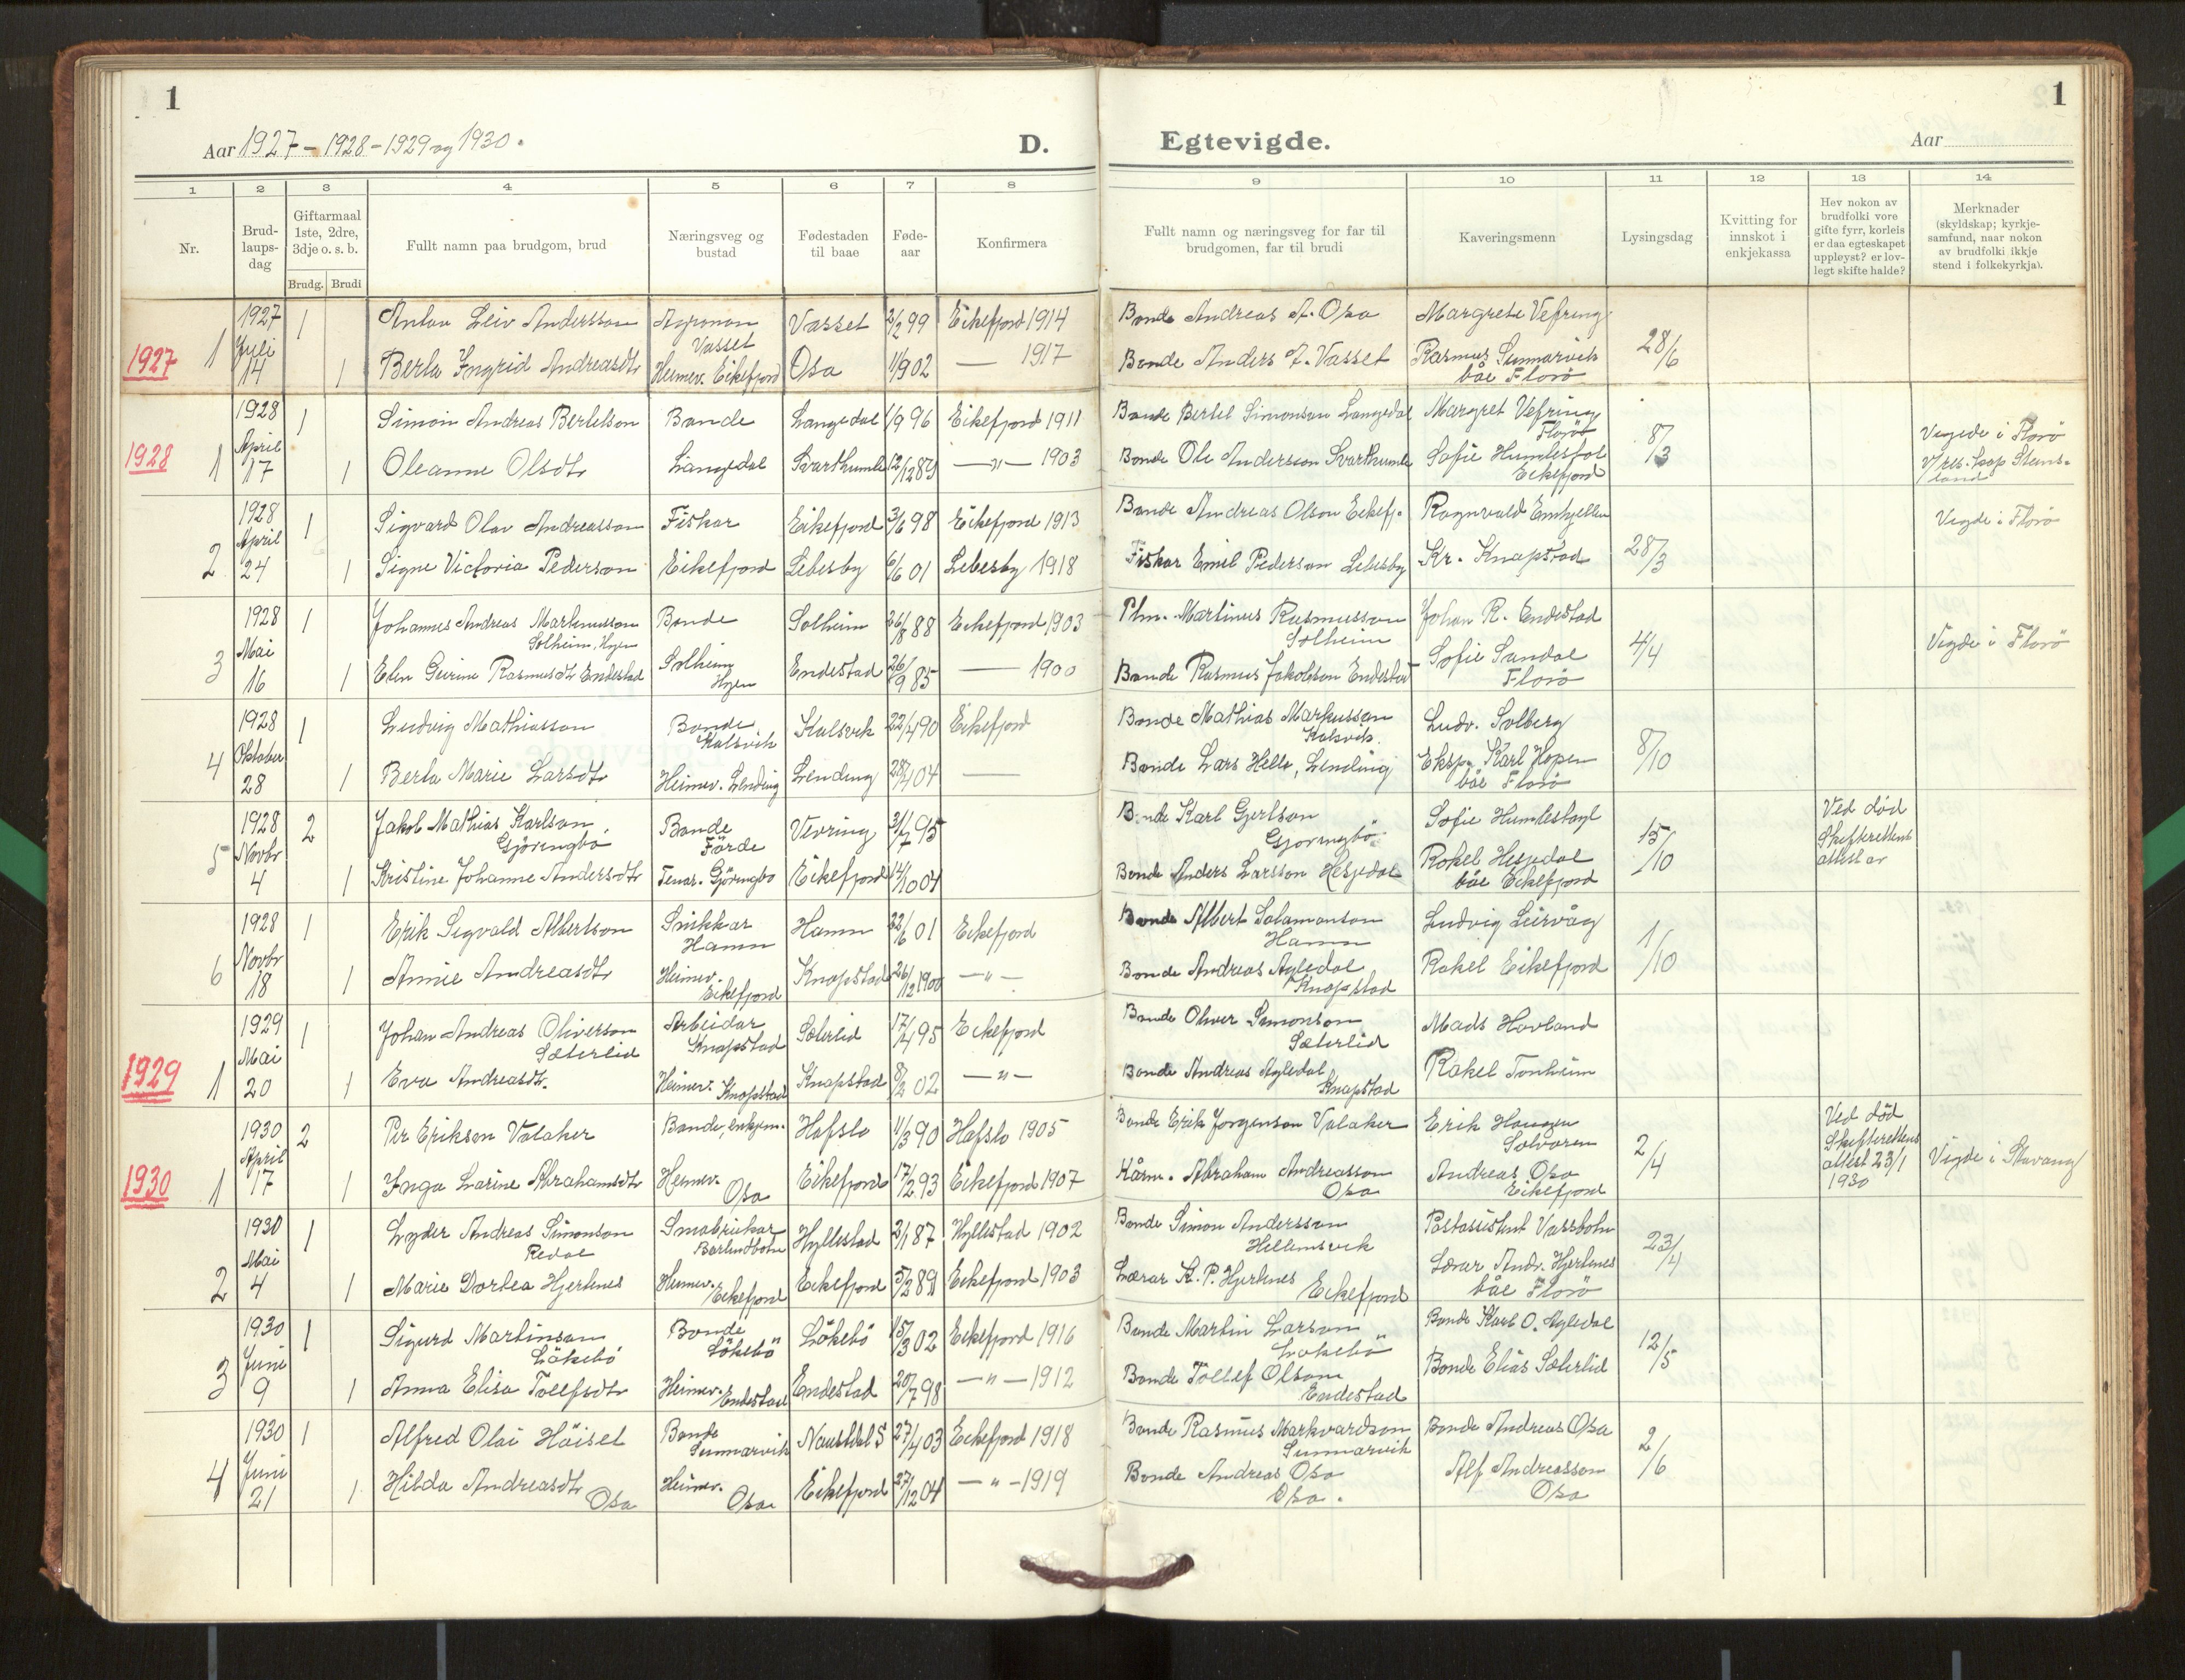 1
Aar 1927 - 1928 - 1929 og 1930.
D.
Egtevigde.
Aar
1
1 2 3 4 5 6 7 8 9 10 11 12 13 14
Nr.
Brud-
laups-
dag
Giftarmaal
1ste, 2dre,
3dje o. s. b.
Brudg. Brudi
Fullt namn paa brudgom, brud
Næringsveg og
bustad
Fødestaden
til baae
Føde-
aar
Konfirmera
Fullt namn og næringsveg for far til
brudgomen, far til brudi
Kaveringsmenn
Lysingsdag
Kvitting for
innskot i
enkjekassa
Hev nokon av
brudfolki vore
gifte fyrr, korleis
er daa egteskapet
uppløyst? er lov-
legt skifte halde?
Merknader
(skyldskap; kyrkje-
samfund, naar nokon
av brudfolki ikkje
stend i folkekyrkja).
1927 1 Anton Leiv Andersson Agronom Vasset 2/2 99 Eikefjord 1914 Bonde Andreas A. Osa Margrete Vefring
Vasset
1927 1 Juli 28/6
14 1 Berta Ingrid Andreasdtr Heimev. Eikefjord Osa 11/9 02 — 1917 Bonde Anders A. Vasset Rasmus Sunnarvik
båe Florö
1928 1 Simon Andreas Bertelson Bonde Langedal 1/9 96 Eikefjord 1911 Bonde Bertel Simonson Langedal Margret Vefring
Florö
1928 1 April 8/3 Vigde i Florö
17 1 Oleanne Olsdtr Langedal Svarthumle —"— 1903 Bonde Ole Andersson Svarthumle Sofie Humlestøl
Eikefjord
v/res. kap Stens-
land
1928 1 Sigvard Olav Andreasson Fiskar Eikefjord 3/6 98 Eikefjord 1913 Bonde Andreas Olson Eikefj. Ragnvald Emhjellen
2 April 28/3 Vigde i Florö
24 1 Signe Victoria Pederson Eikefjord Lebesby 6/6 01 Lebesby 1918 Fiskar Emil Pederson Lebesby Kr. Knapstad
1928 1 Johannes Andreas Martinusson Bonde Solheim 26/8 88 Eikefjord 1903 Plm. Martinus Rasmusson Johan R. Endestad
Solheim, Hyen Solheim
3 Mai 4/4 Vigde i Florö
16 1 Elen Geirine Rasmusdtr Endestad Solheim Endestad 26/9 85 — 1900 Bonde Rasmus Jakobson Endestad Sofie Sandal
Hyen Florö
1928 1 Ludvig Mathiasson Bonde Kalsvik 22/4 90 Eikefjord Bonde Mathias Markusson Ludv. Solberg
Kalsvik Kalsvik
4 Oktober 8/10
28 1 Berta Marie Larsdtr Heimev. Lending Lending 28/4 04 — Bonde Lars Helle, Lending Eksp. Karl Hopen
båe Florö
1928 2 Jakob Mathias Karlson Bonde Vevring 31/7 95 Bonde Karl Gjertson Sofie Humlestøyl Ved död
Gjöringbö Förde Gjöringbö
5 Novbr 15/10 Skifterettens
4 1 Kristine Johanne Andersdtr Tenar. Gjöringbö Eikefjord 14/10 04 Bonde Anders Larsson Hesjedal Rakel Hesjedal
båe Eikefjord
attest av
1928 1 Erik Sigvald Albertson Snikkar Hamn 22/6 01 Eikefjord Bonde Albert Salamonson Ludvig Leirvåg
Hamn Hamn
6 Novbr 1/10
18 1 Annie Andreasdtr Heimev. Knapstad 26/12 1900 —"— Bonde Andreas Agledal Rakel Eikefjord
Eikefjord Knapstad
1929 1 Johan Andreas Oliverson Arbeidar Sæterlid 17/4 95 Eikefjord Bonde Oliver Simonson Mads Hovland
Sæterlid Knapstad Sæterlid
1929 1 Mai
20 1 Eva Andreasdtr. Heimev. Knapstad Knapstad 8/2 02 —"— Bonde Andreas Agledal Rakel Tonheim
Knapstad
1930 2 Per Erikson Valaker Bonde, enkjem. Hafslo 11/3 90 Hafslo 1905 Bonde Erik Jorgenson Valaker Erik Haugen Ved död
Solvoren
1930 1 April 2/4 Skifterettens
17 1 Inga Larine Abrahamsdtr Heimev. Eikefjord 17/2 93 Eikefjord 1907 Kårm. Abraham Andreasson Andreas Osa attest 23/1 Vigde i Stavang
Osa Osa Eikefjord 1930
1930 1 Lyder Andreas Simonson Småbrukar Hyllestad 3/1 87 Hyllestad 1902 Bonde Simon Andersson Postassistent Vassbotn
Redal Barlindbotn Hellemsvik
2 Mai 23/4
4 1 Marie Dortea Hjertenes Heimev. Eikefjord 5/2 89 Eikefjord 1903 Lærar K. P. Hjertenes Lærar Andr. Hjertenes
Eikefjord Eikefjord båe Florö
1930 1 Sigurd Martinson Bonde Lökebö 15/3 02 Eikefjord 1916 Bonde Martin Larson Bonde Karl O. Agledal
Lökebö Lökebö Lökebö
3 Juni 12/5
9 1 Anna Elisa Tollefsdtr Heimev. Endestad 20/7 98 —"— 1912 Bonde Tollef Olson Bonde Elias Sæterlid
Endestad Endestad
1930 1 Alfred Olai Höiset Bonde Naustdal S 27/4 03 Eikefjord 1918 Bonde Rasmus Markvardson Bonde Andreas Osa
Sunnarvik Sunnarvik
4 Juni 2/6
21 1 Hilda Andreasdtr Heimev. Eikefjord 27/12 04 —"— 1919 Bonde Andreas Osa Alf Andreasson
Osa Osa Osa. Osa